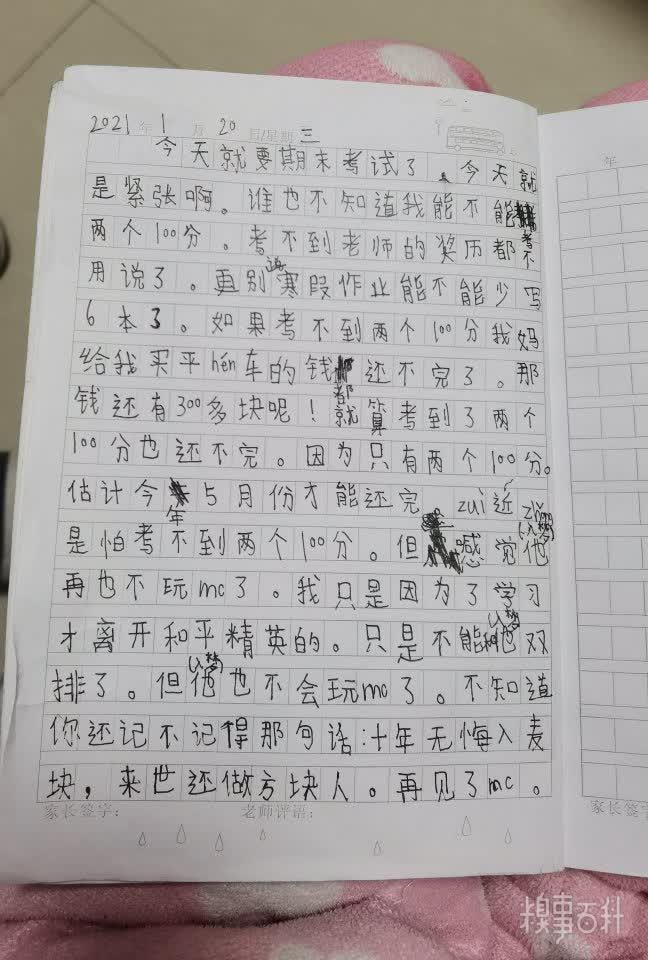 2021年1月20日/星期三
今天就要期末考试了。今天就
是紧张啊。谁也不知道我能不能考
两个100分。考不到老师的奖历都不
用说了。更别说寒假作业能不能少写
6本了。如果考不到两个100分我妈
给我买平hén车的钱都还不完了。那
钱还有300多块呢！就算考到了两个
100分也还不完。因为只有两个100分。
估计今年5月份才能还完。zuì近zhǔ
是怕考不到两个100分。但感觉他(以梦)
再也不玩mc了。我只是因为了学习
才离开和平精英的。只是不能和他(以梦)双
排了。但他(以梦)也不会玩mc了。不知道
你还记不记得那句话:十年无悔入麦
块，来世还做方块人。再见了mc。
家长签字：
老师评语：
年
家长签字
糗事百科